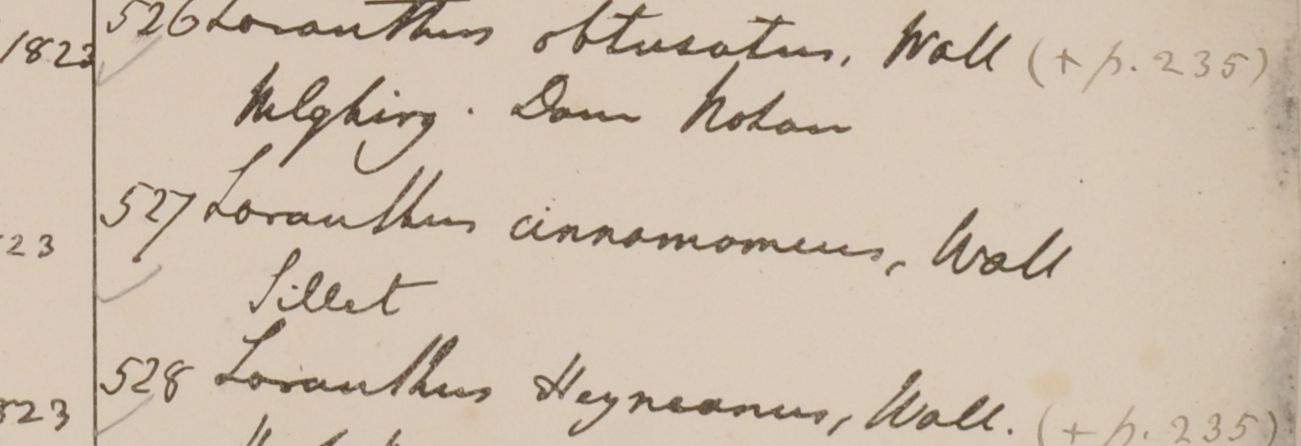 1823 526 Loranthus obtusatus, Wall (+ p. 235)
Nilghiry. Dom Notan
527 Loranthus cinnamomeus, Wall
23
Sillet
528 Loranthus Heyneanus, Wall. (+ p. 235)
23